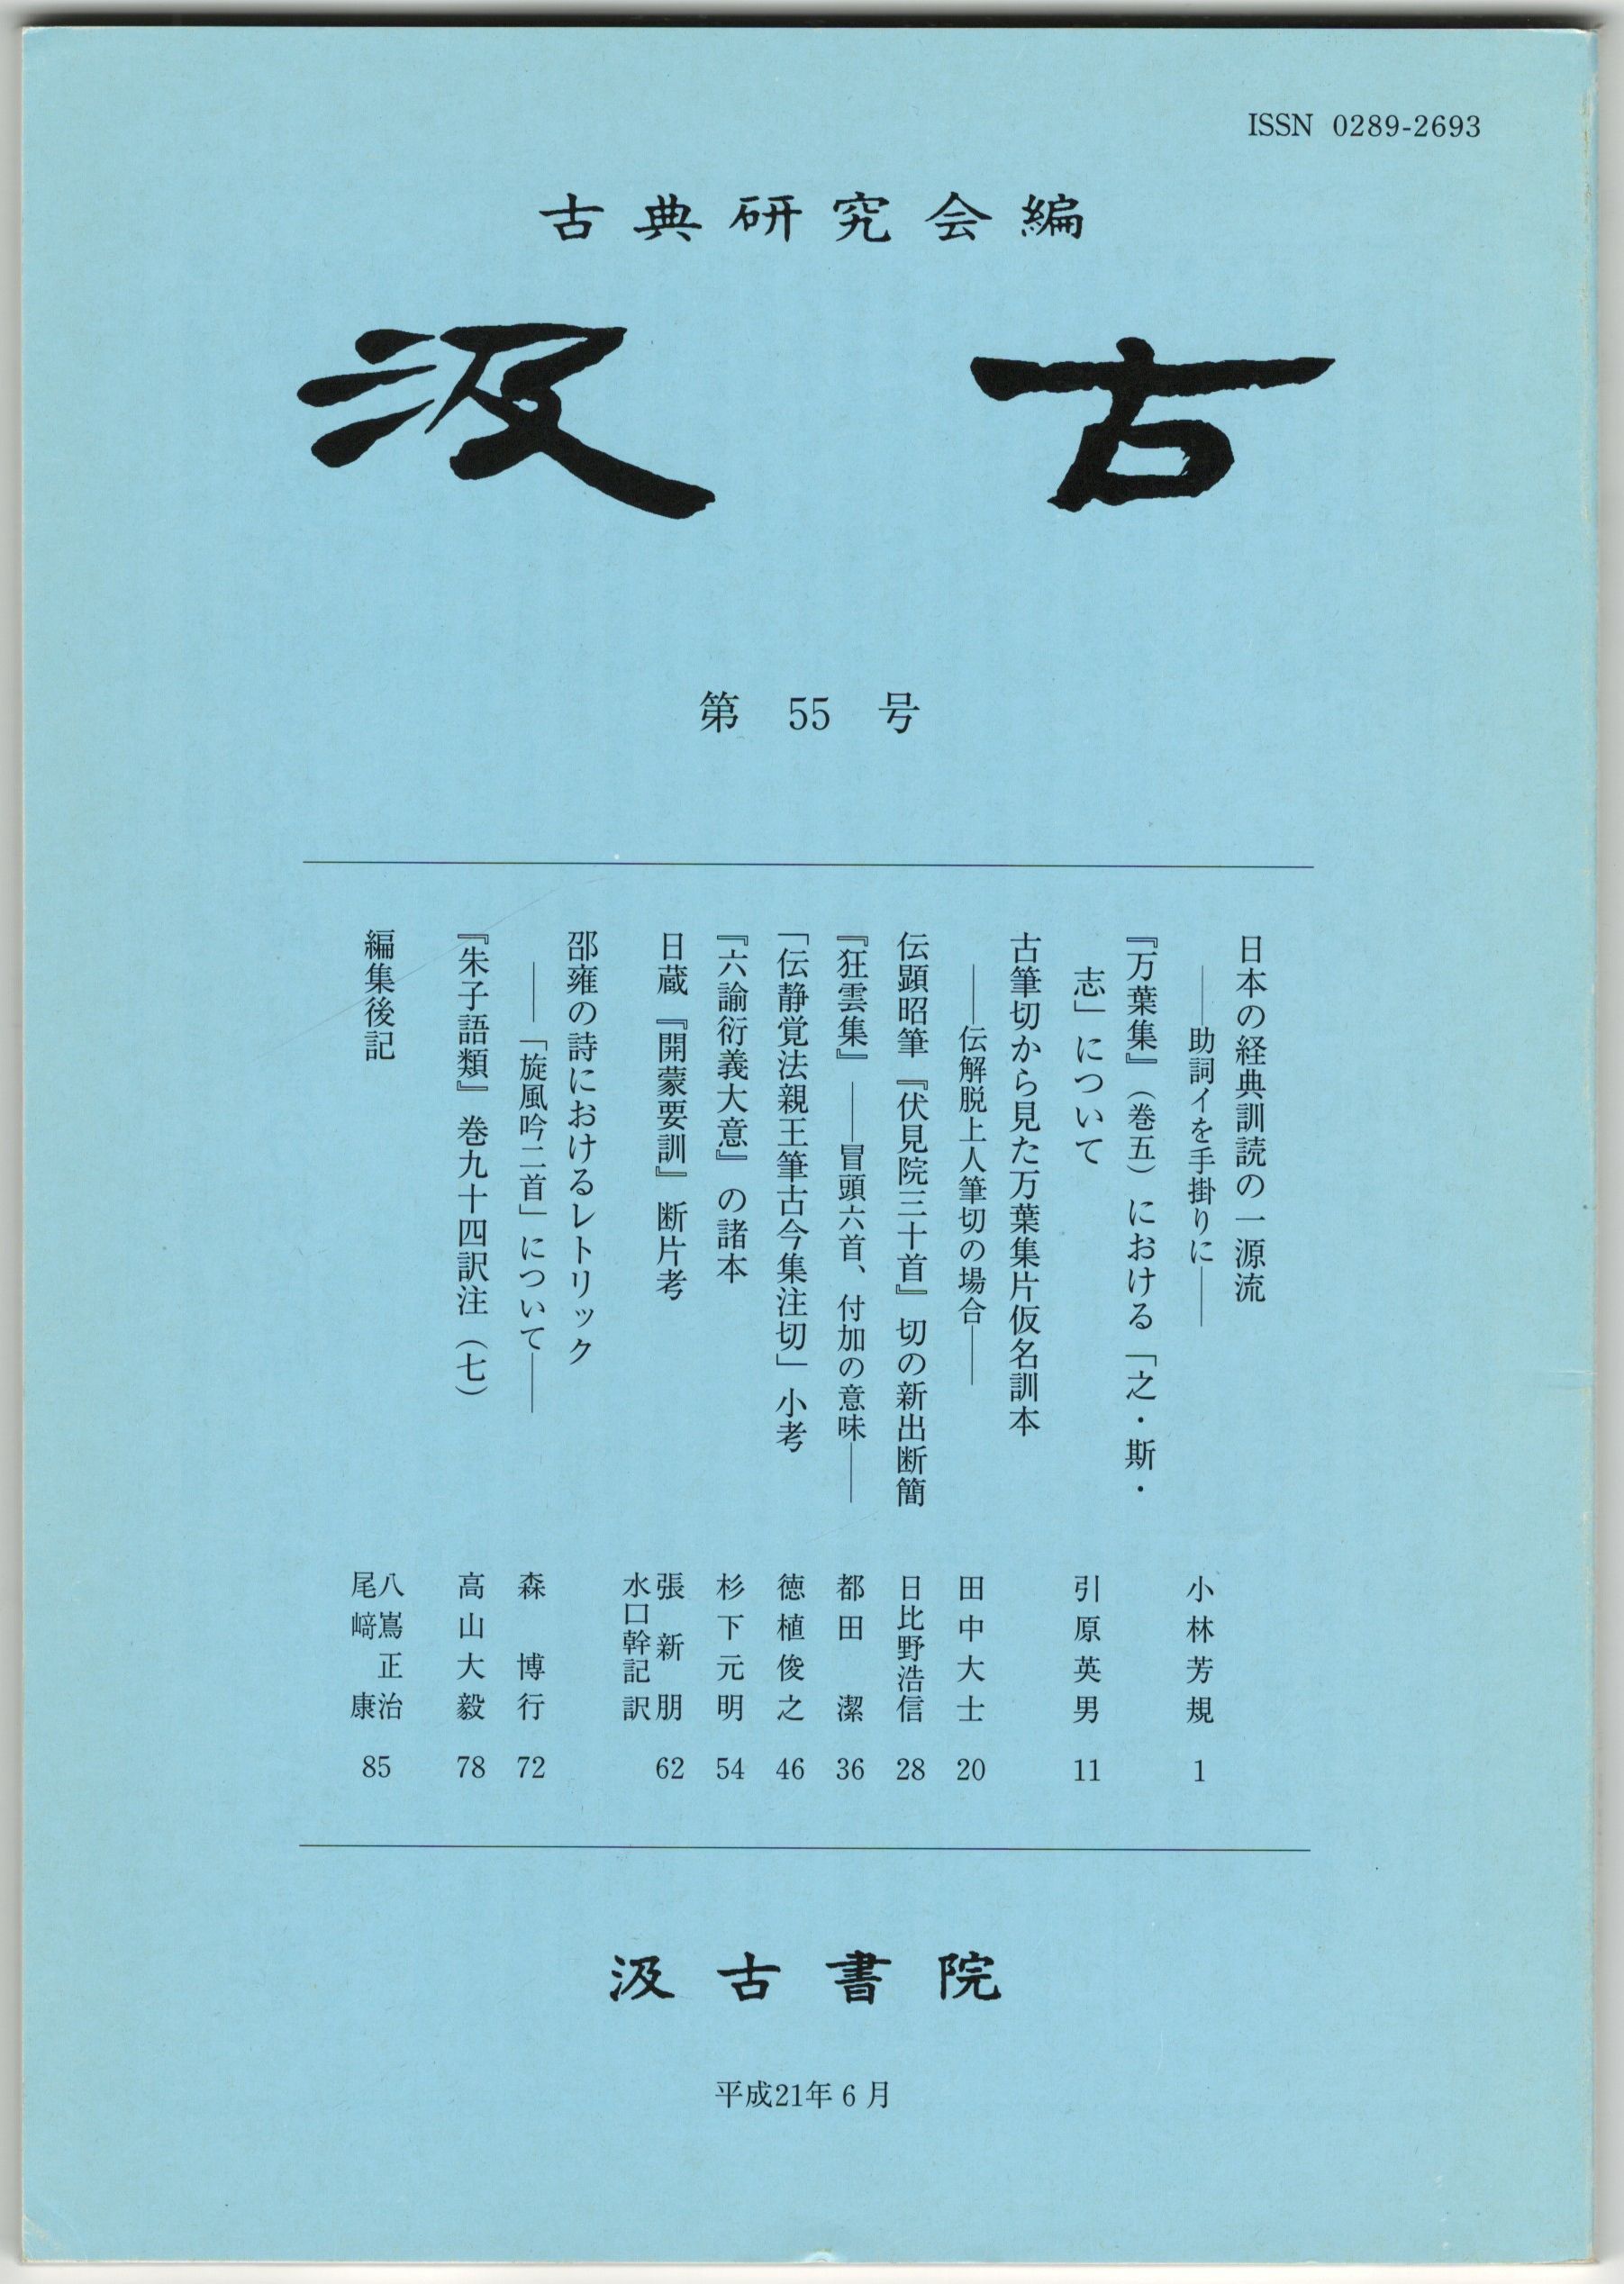 ISSN 0289-2693
古典研究会編
汲古
第 55 号
日本の経典訓読の一源流
――助詞イを手掛りに―― 小林芳規 1
『万葉集』（巻五）における「之・斯・
志」について 引原英男 11
古筆切から見た万葉集片仮名訓本
――伝解脱上人筆切の場合―― 田中大士 20
伝顕昭筆『伏見院三十首』切の新出断簡 日比野浩信 28
『狂雲集』――冒頭六首、付加の意味―― 都田潔 36
「伝静覚法親王筆古今集注切」小考 徳植俊之 46
『六諭衍義大意』の諸本 杉下元明 54
日蔵『開蒙要訓』断片考 張新朋 62
水口幹記訳
邵雍の詩におけるレトリック
――「旋風吟二首」について―― 森博行 72
『朱子語類』巻九十四訳注（七） 高山大毅 78
編集後記 八嶌正治 85
尾﨑康
汲古書院
平成21年6月